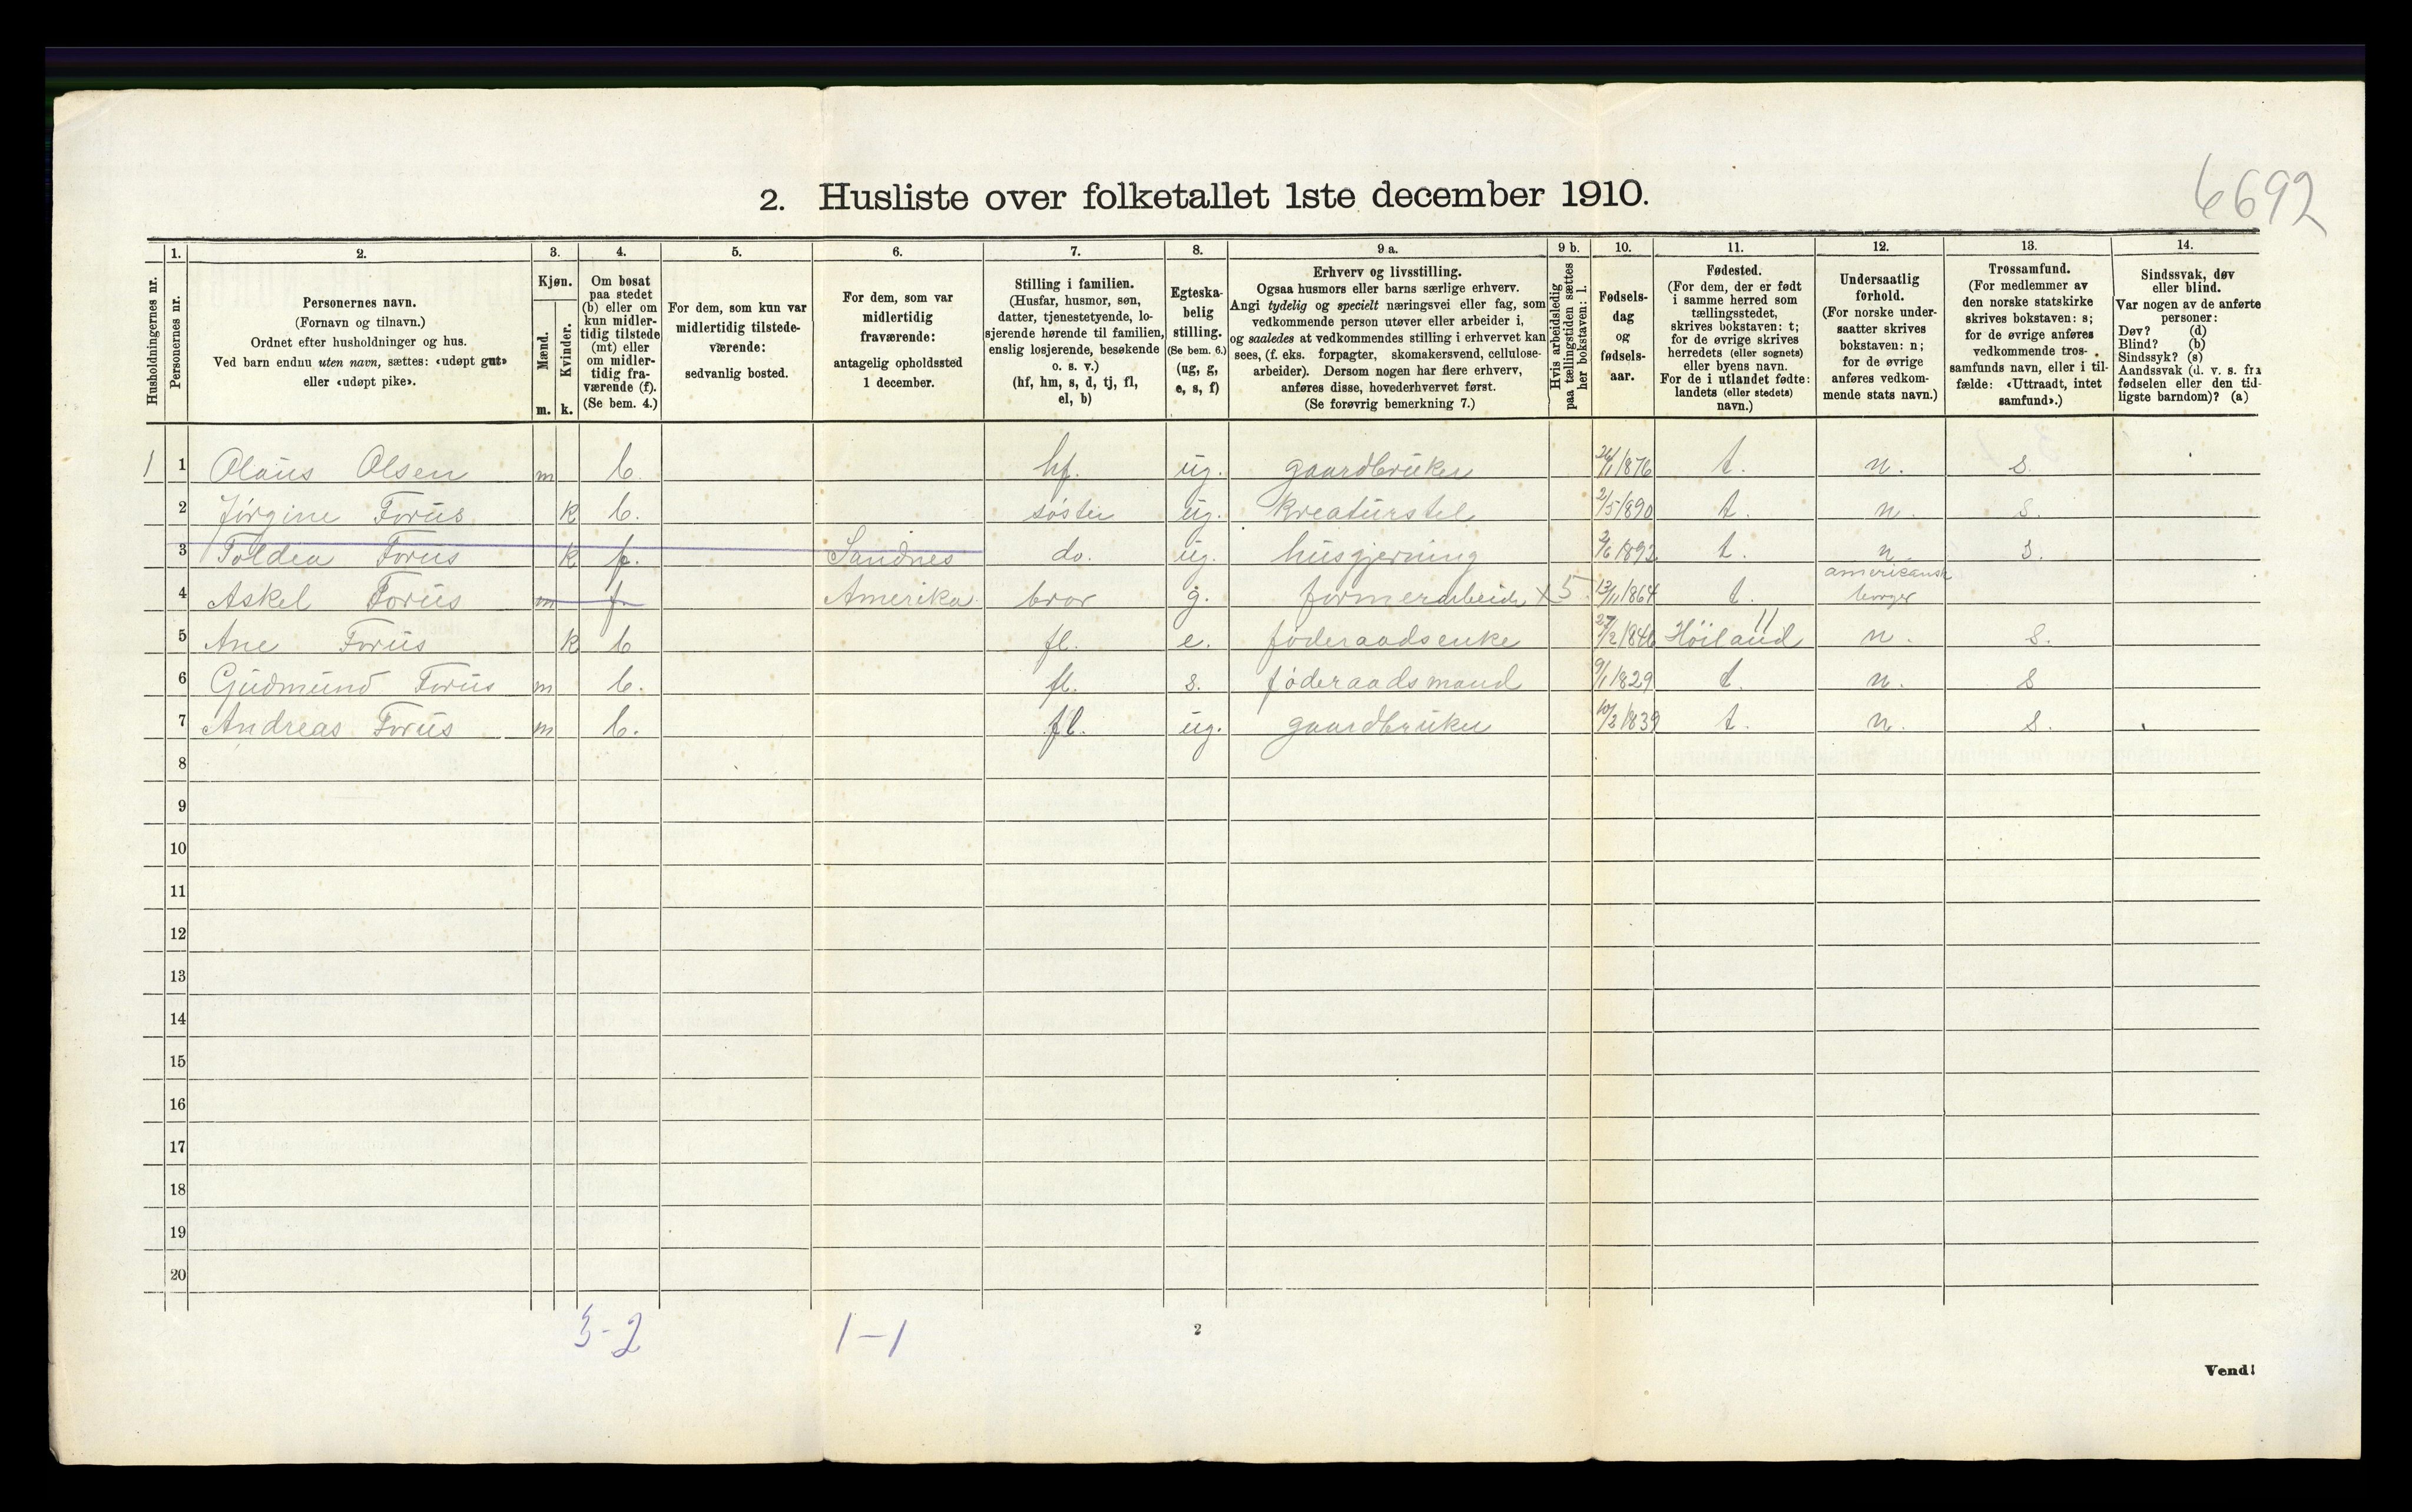 6692
2. Husliste over folketallet 1ste december 1910.
Husholdningernes nr.
1.
Personernes nr.
2.
Personernes navn.
(Fornavn og tilnavn.)
Ordnet efter husholdninger og hus.
Ved barn endnu uten navn, sættes: «udøpt gut»
eller «udøpt pike».
3.
Kjøn.
Mænd.
m.
Kvinder.
k.
4.
Om bosat
paa stedet
(b) eller om
kun midler-
tidig tilstede
(mt) eller
om midler-
tidig fra-
værende (f).
(Se bem. 4.)
5.
For dem, som kun var
midlertidig tilstede-
værende:
sedvanlig bosted.
6.
For dem, som var
midlertidig
fraværende:
antagelig opholdssted
1 december.
7.
Stilling i familien.
(Husfar, husmor, søn,
datter, tjenestetyende, lo-
sjerende hørende til familien,
enslig losjerende, besøkende
o. s. v.)
(hf, hm, s, d, tj, fl,
el, b)
8.
Egteska-
belig
stilling.
(Se bem. 6.)
(ug, g,
e, s, f)
9 a.
Erhverv og livsstilling.
Ogsaa husmors eller barns særlige erhverv.
Angi tydelig og specielt næringsvei eller fag, som
vedkommende person utøver eller arbeider i,
og saaledes at vedkommendes stilling i erhvervet kan
sees, (f. eks. forpagter, skomakersvend, cellulose-
arbeider). Dersom nogen har flere erhverv,
anføres disse, hovederhvervet først.
(Se forøvrig bemerkning 7.)
9 b.
Hvis arbeidsledig
paa tællingstiden sættes
her bokstaven: l.
10.
Fødsels-
dag
og
fødsels-
aar.
11.
Fødested.
(For dem, der er født
i samme herred som
tællingsstedet,
skrives bokstaven: t;
for de øvrige skrives
herredets (eller sognets)
eller byens navn.
For de i utlandet fødte:
landets (eller stedets)
navn.)
12.
Undersaatlig
forhold.
(For norske under-
saatter skrives
bokstaven: n;
for de øvrige
anføres vedkom-
mende stats navn.)
13.
Trossamfund.
(For medlemmer av
den norske statskirke
skrives bokstaven: s;
for de øvrige anføres
vedkommende tros-
samfunds navn, eller i til-
fælde: «Uttraadt, intet
samfund».)
14.
Sindssvak, døv
eller blind.
Var nogen av de anførte
personer:
Døv? (d)
Blind? (b)
Sindssyk? (s)
Aandssvak (d. v. s. fra
fødselen eller den tid-
ligste barndom)? (a)
1 1 Olaus Olsen m b. hf. ug. gaardbruker 1876 t. n. s.
2 Jörgine Forus k b. söster ug. kreaturstel 2/5 1890 t. n. s.
3 Toldea Forus k f. Sandnes do. ug. husgjerning t. n. s.
4 Askel Forus m f. Amerika bror g. x 5. 13/11 1864 t. amerikansk
borger
5 Ane Forus k b fl. e. föderaadsenke 27/2 1846 Höiland 11 n. s.
6 Gudmund Forus m b. fl. s. föderaadsmand 9/1 1829 t. n. s
7 Andreas Forus m b. fl. ug. gaardbruker 1839 t. n. s.
8
9
10
11
12
13
14
15
16
17
18
19
20
3-2 1-1
2
Vend!